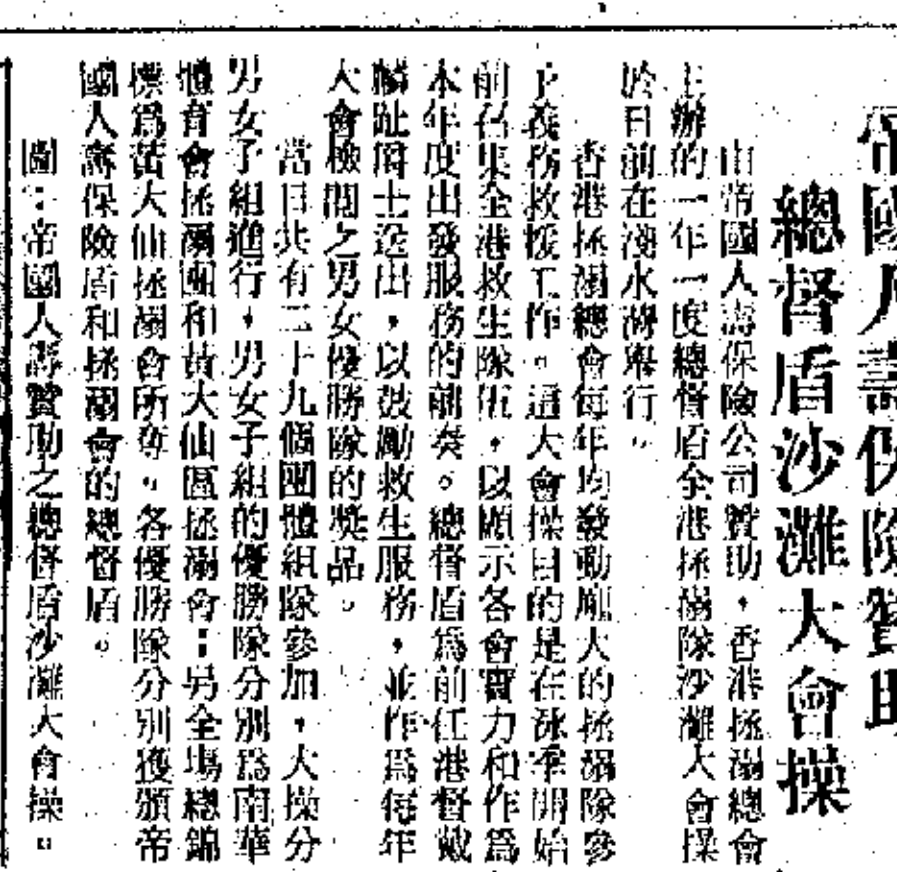 帝國人壽保險贊助
總督盾沙灘大會操
由帝國人壽保險公司贊助，香港拯溺總會
主辦的一年一度總督盾全港拯溺隊沙灘大會操
於日前在淺水灣舉行。
香港拯溺總會每年均發動龐大的拯溺隊參
予義務救援工作。這大會操目的是在泳季開始
前召集全港救生隊伍，以顯示各會實力和作為
本年度出發服務的前奏。總督盾為前任港督戴
麟趾爵士送出，以鼓勵救生服務，並作為每年
大會檢閱之男女優勝隊的獎品。
當日共有二十九個團體組隊參加，大操分
男女子組進行，男女子組的優勝隊分別為南華
體育會拯溺團和黃大仙區拯溺會；另全場總錦
標為黃大仙拯溺會所奪。各優勝隊分別獲頒帝
國人壽保險盾和拯溺會的總督盾。
圖：帝國人壽贊助之總督盾沙灘大會操。